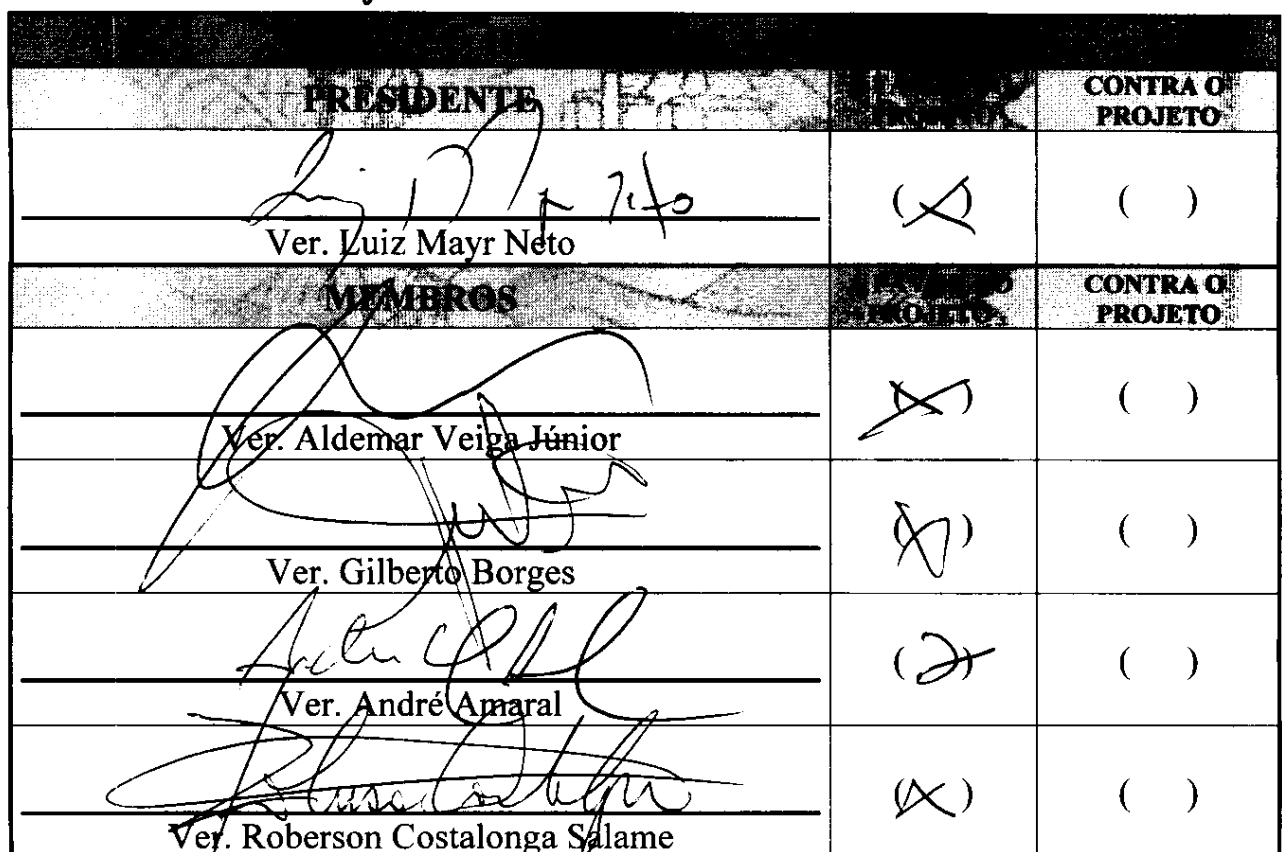 PRESIDENTE
PROJETO
CONTRA O
PROJETO
( X )
( )
Ver. Luiz Mayr Neto
MEMBROS
PROJETO
CONTRA O
PROJETO
( X )
( )
Ver. Aldemar Veiga Júnior
( X )
( )
Ver. Gilberto Borges
( )
Ver. André Amaral
( X )
( )
Ver. Roberson Costalonga Salame